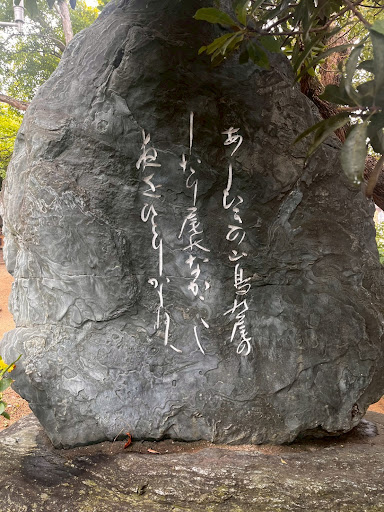 あしひきの山鳥の尾の
しだり尾のながながし
夜をひとりかも